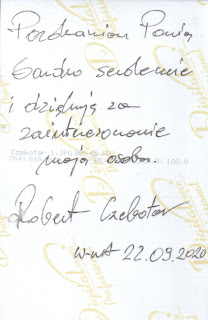 Pozdrawiam Panią
bardzo serdecznie
i dziękuję za
zainteresowanie
moją osobą.
Robert Czebotar
W-wA 22.09.2020